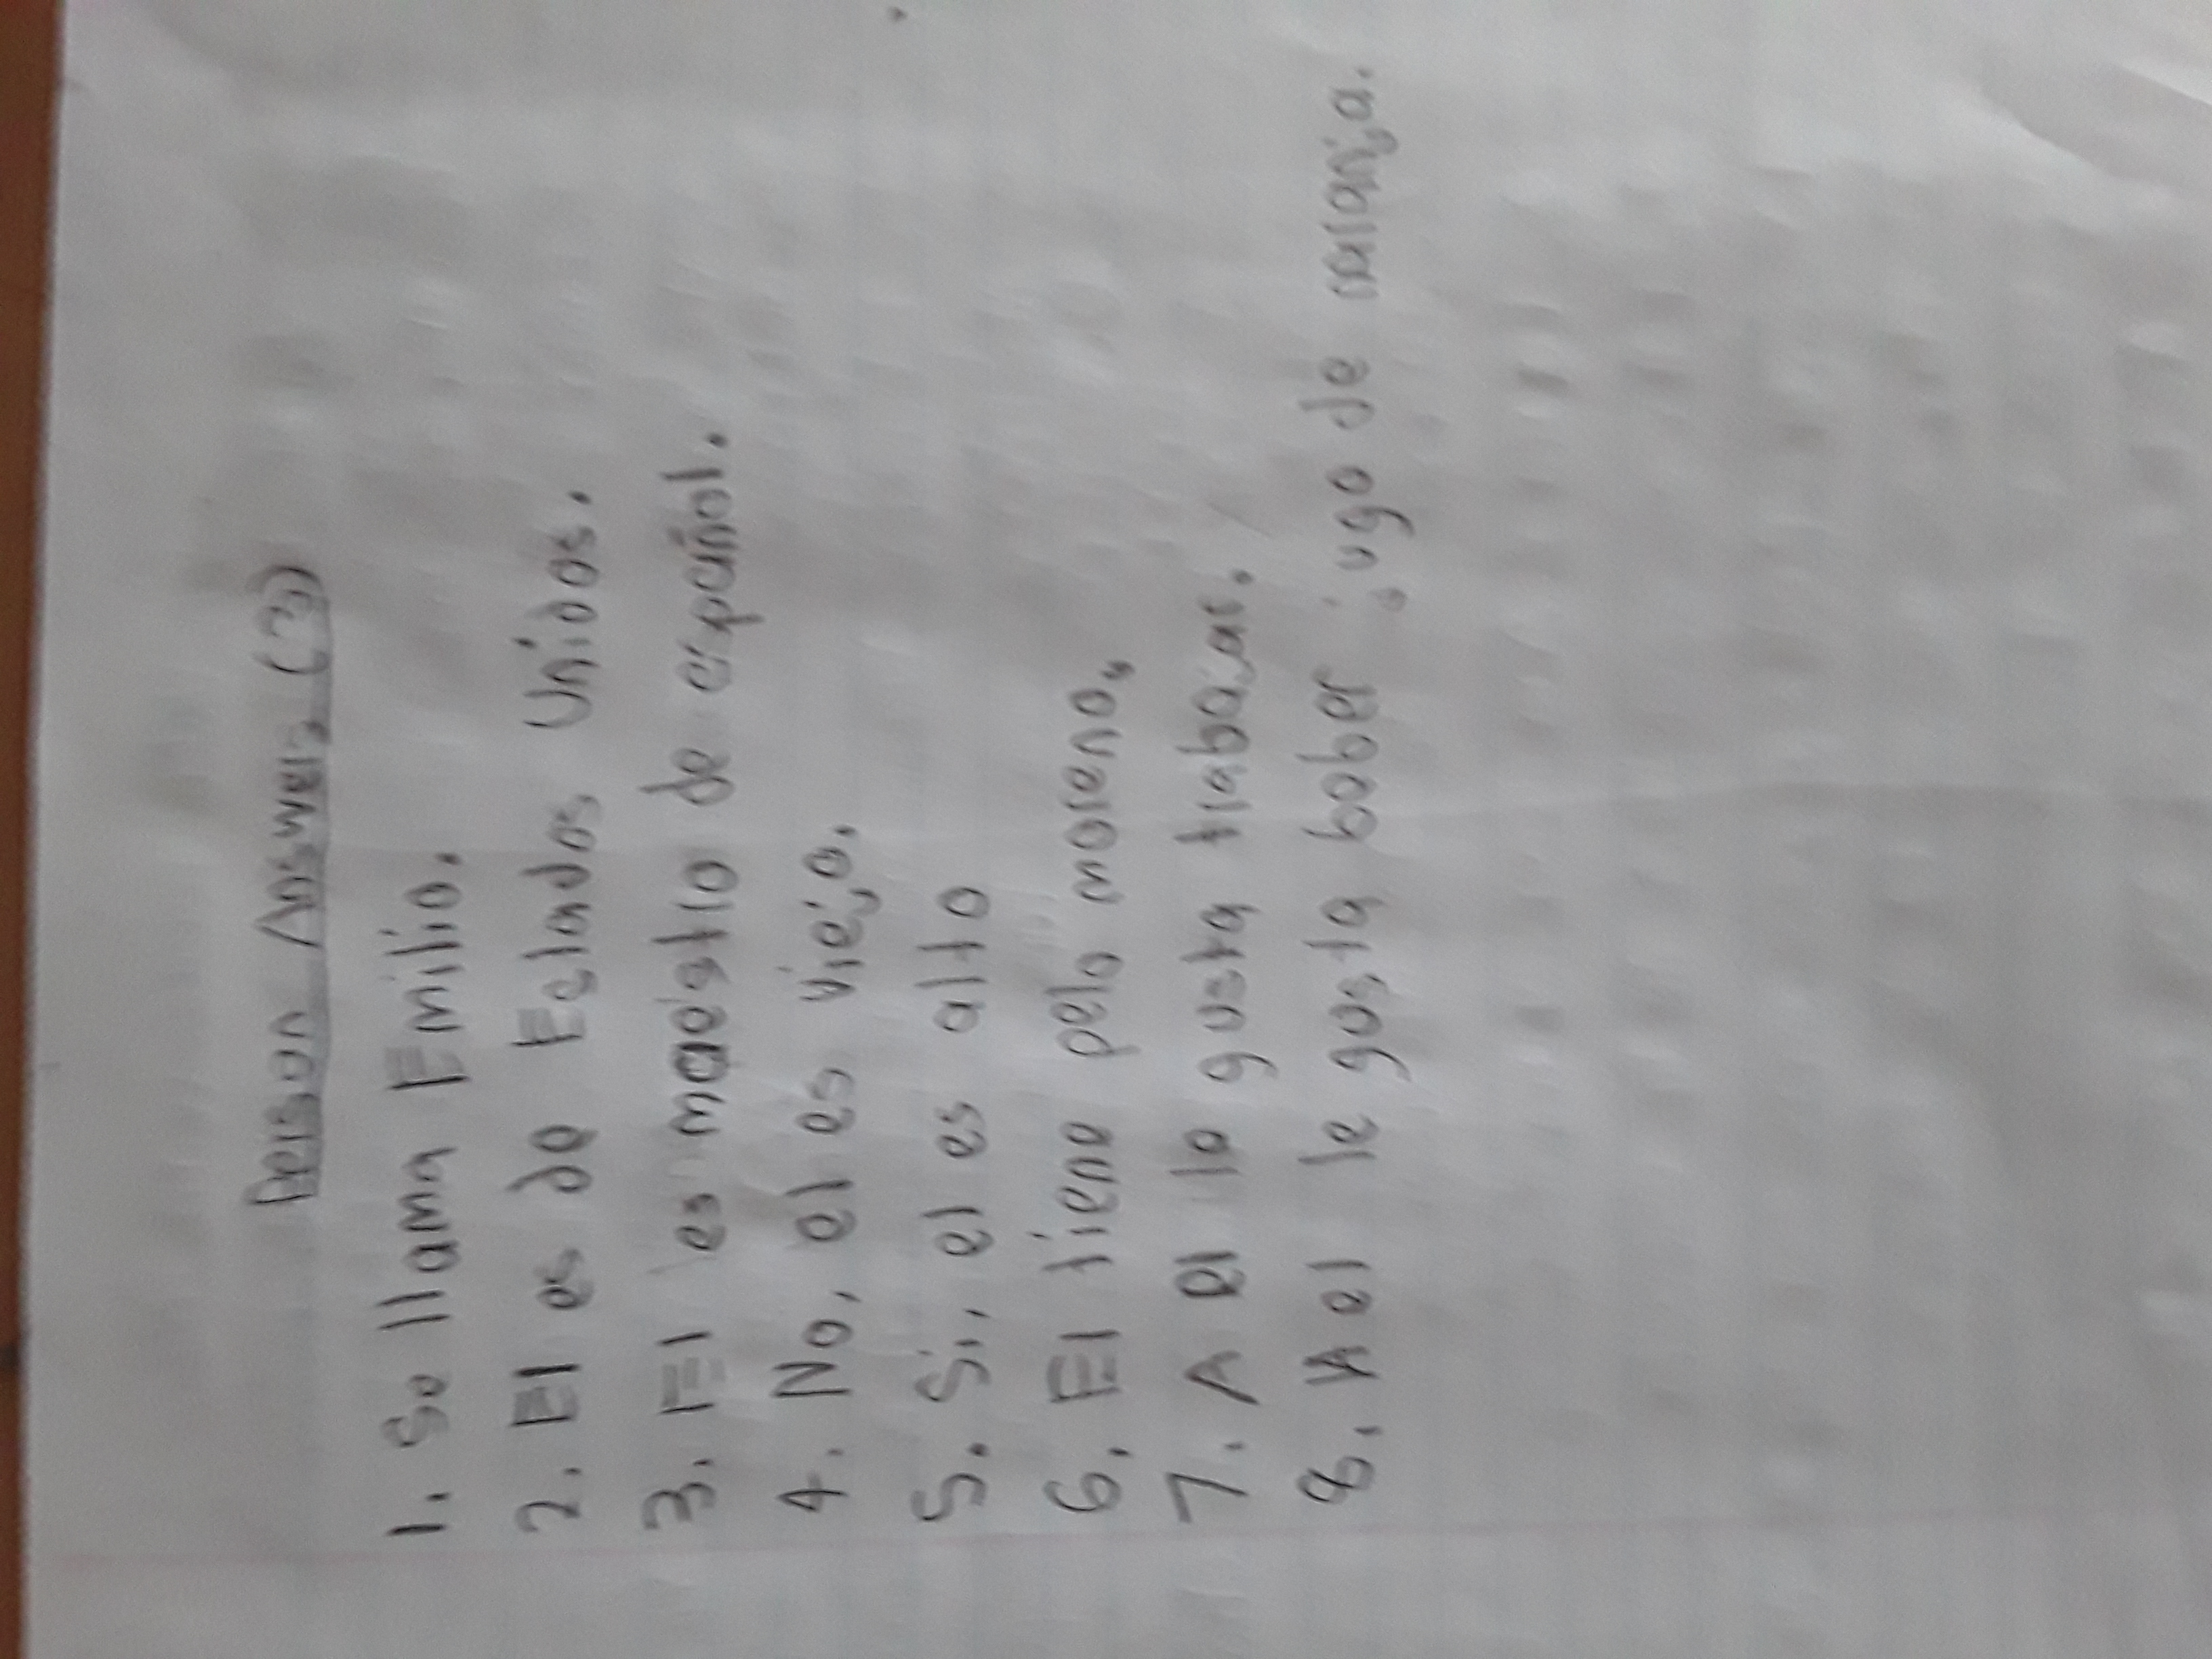 Person Answers (3)
1. Se llama Emilio.
2. El es de Estados Unidos.
3. El es maestro de español.
4. No, el es viejo.
5. Si, el es alto
6. El tiene pelo moreno.
7. A el le gusta trabajar.
8. A el le gusta beber jugo de naranja.